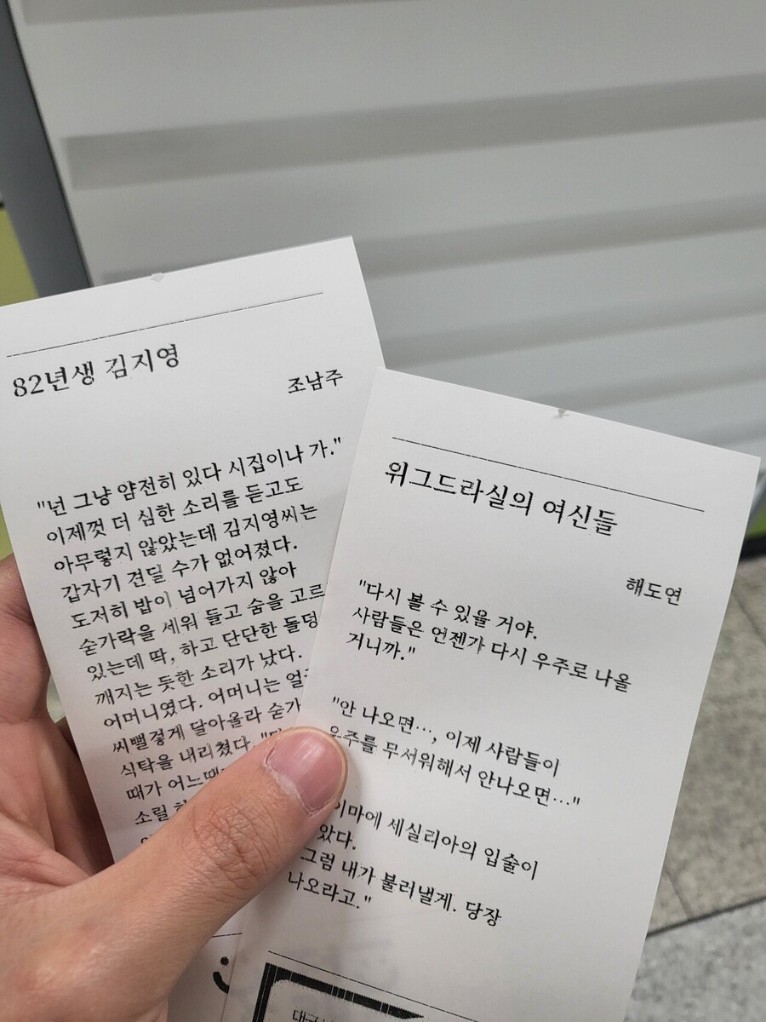 82년생 김지영
조남주
"넌 그냥 얌전히 있다 시집이나 가."
이제껏 더 심한 소리를 듣고도
아무렇지 않았는데 김지영씨는
갑자기 견딜 수가 없어졌다.
도저히 밥이 넘어가지 않아
숟가락을 세워 들고 숨을 고르
있는데 딱, 하고 단단한 돌덩
깨지는 듯한 소리가 났다.
어머니였다. 어머니는
씨뻘겋게 달아올라 숟가
식탁을 내리쳤다.
때가
소릴
위그드라실의 여신들
해도연
"다시 볼 수 있을 거야.
사람들은 언젠가 다시 우주로 나올
거니까."
"안 나오면…, 이제 사람들이
우주를 무서워해서 안나오면…"
이마에 세실리아의 입술이
았다.
그럼 내가 불러낼게. 당장
나오라고."